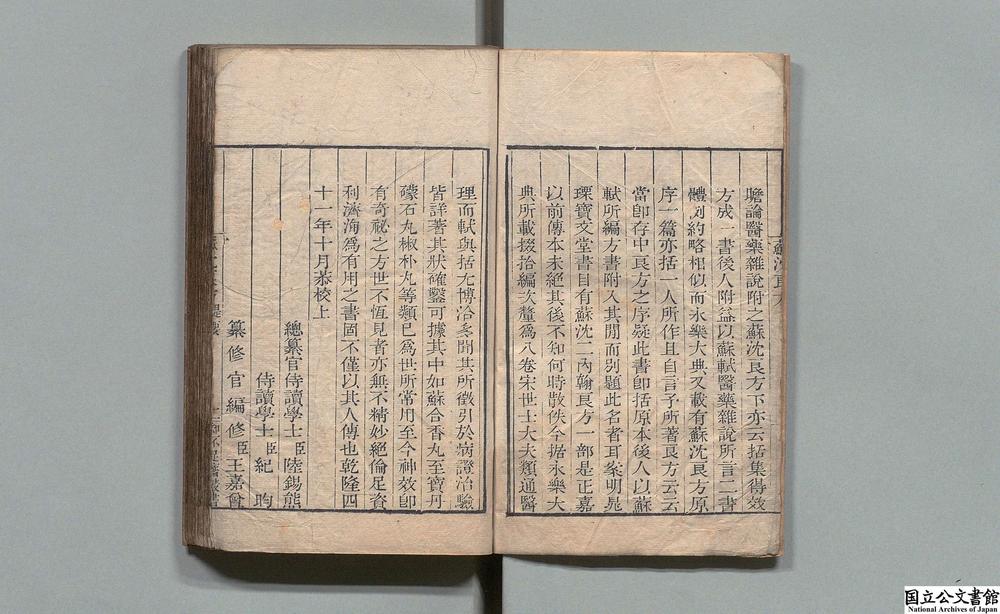 瞻論醫藥雜說附之蘇沈良方下亦云括集得效
方成一書後人附益以蘇軾醫藥雜說所言二書
體例約略相似而永樂大典又載有蘇沈良方原
序一篇亦括一人所作且自言予所著良方云云
當即存中良方之序疑此書即括原本後人以蘇
軾所編方書附入其閒而別題此名者耳案明晁
瑮寶文堂書目有蘇沈二內翰良方一部是正嘉
以前傳本未絕其後不知何時散佚今據永樂大
典所載掇拾編次釐爲八卷宋世士大夫類通醫
理而軾與括尤博洽多聞其所徵引於病證治驗
皆詳著其狀確鑿可據其中如蘇合香丸至寶丹
礞石丸椒朴丸等類已爲世所常用至今神效即
有奇祕之方世不恆見者亦無不精妙絕倫足資
利濟海爲有用之書固不僅以其人傳也乾隆四
十一年十月恭校上
總纂官侍讀學士臣陸錫熊
侍讀學士臣紀昀
纂修官編修臣王嘉曾
国立公文書館
National Archives of Japan